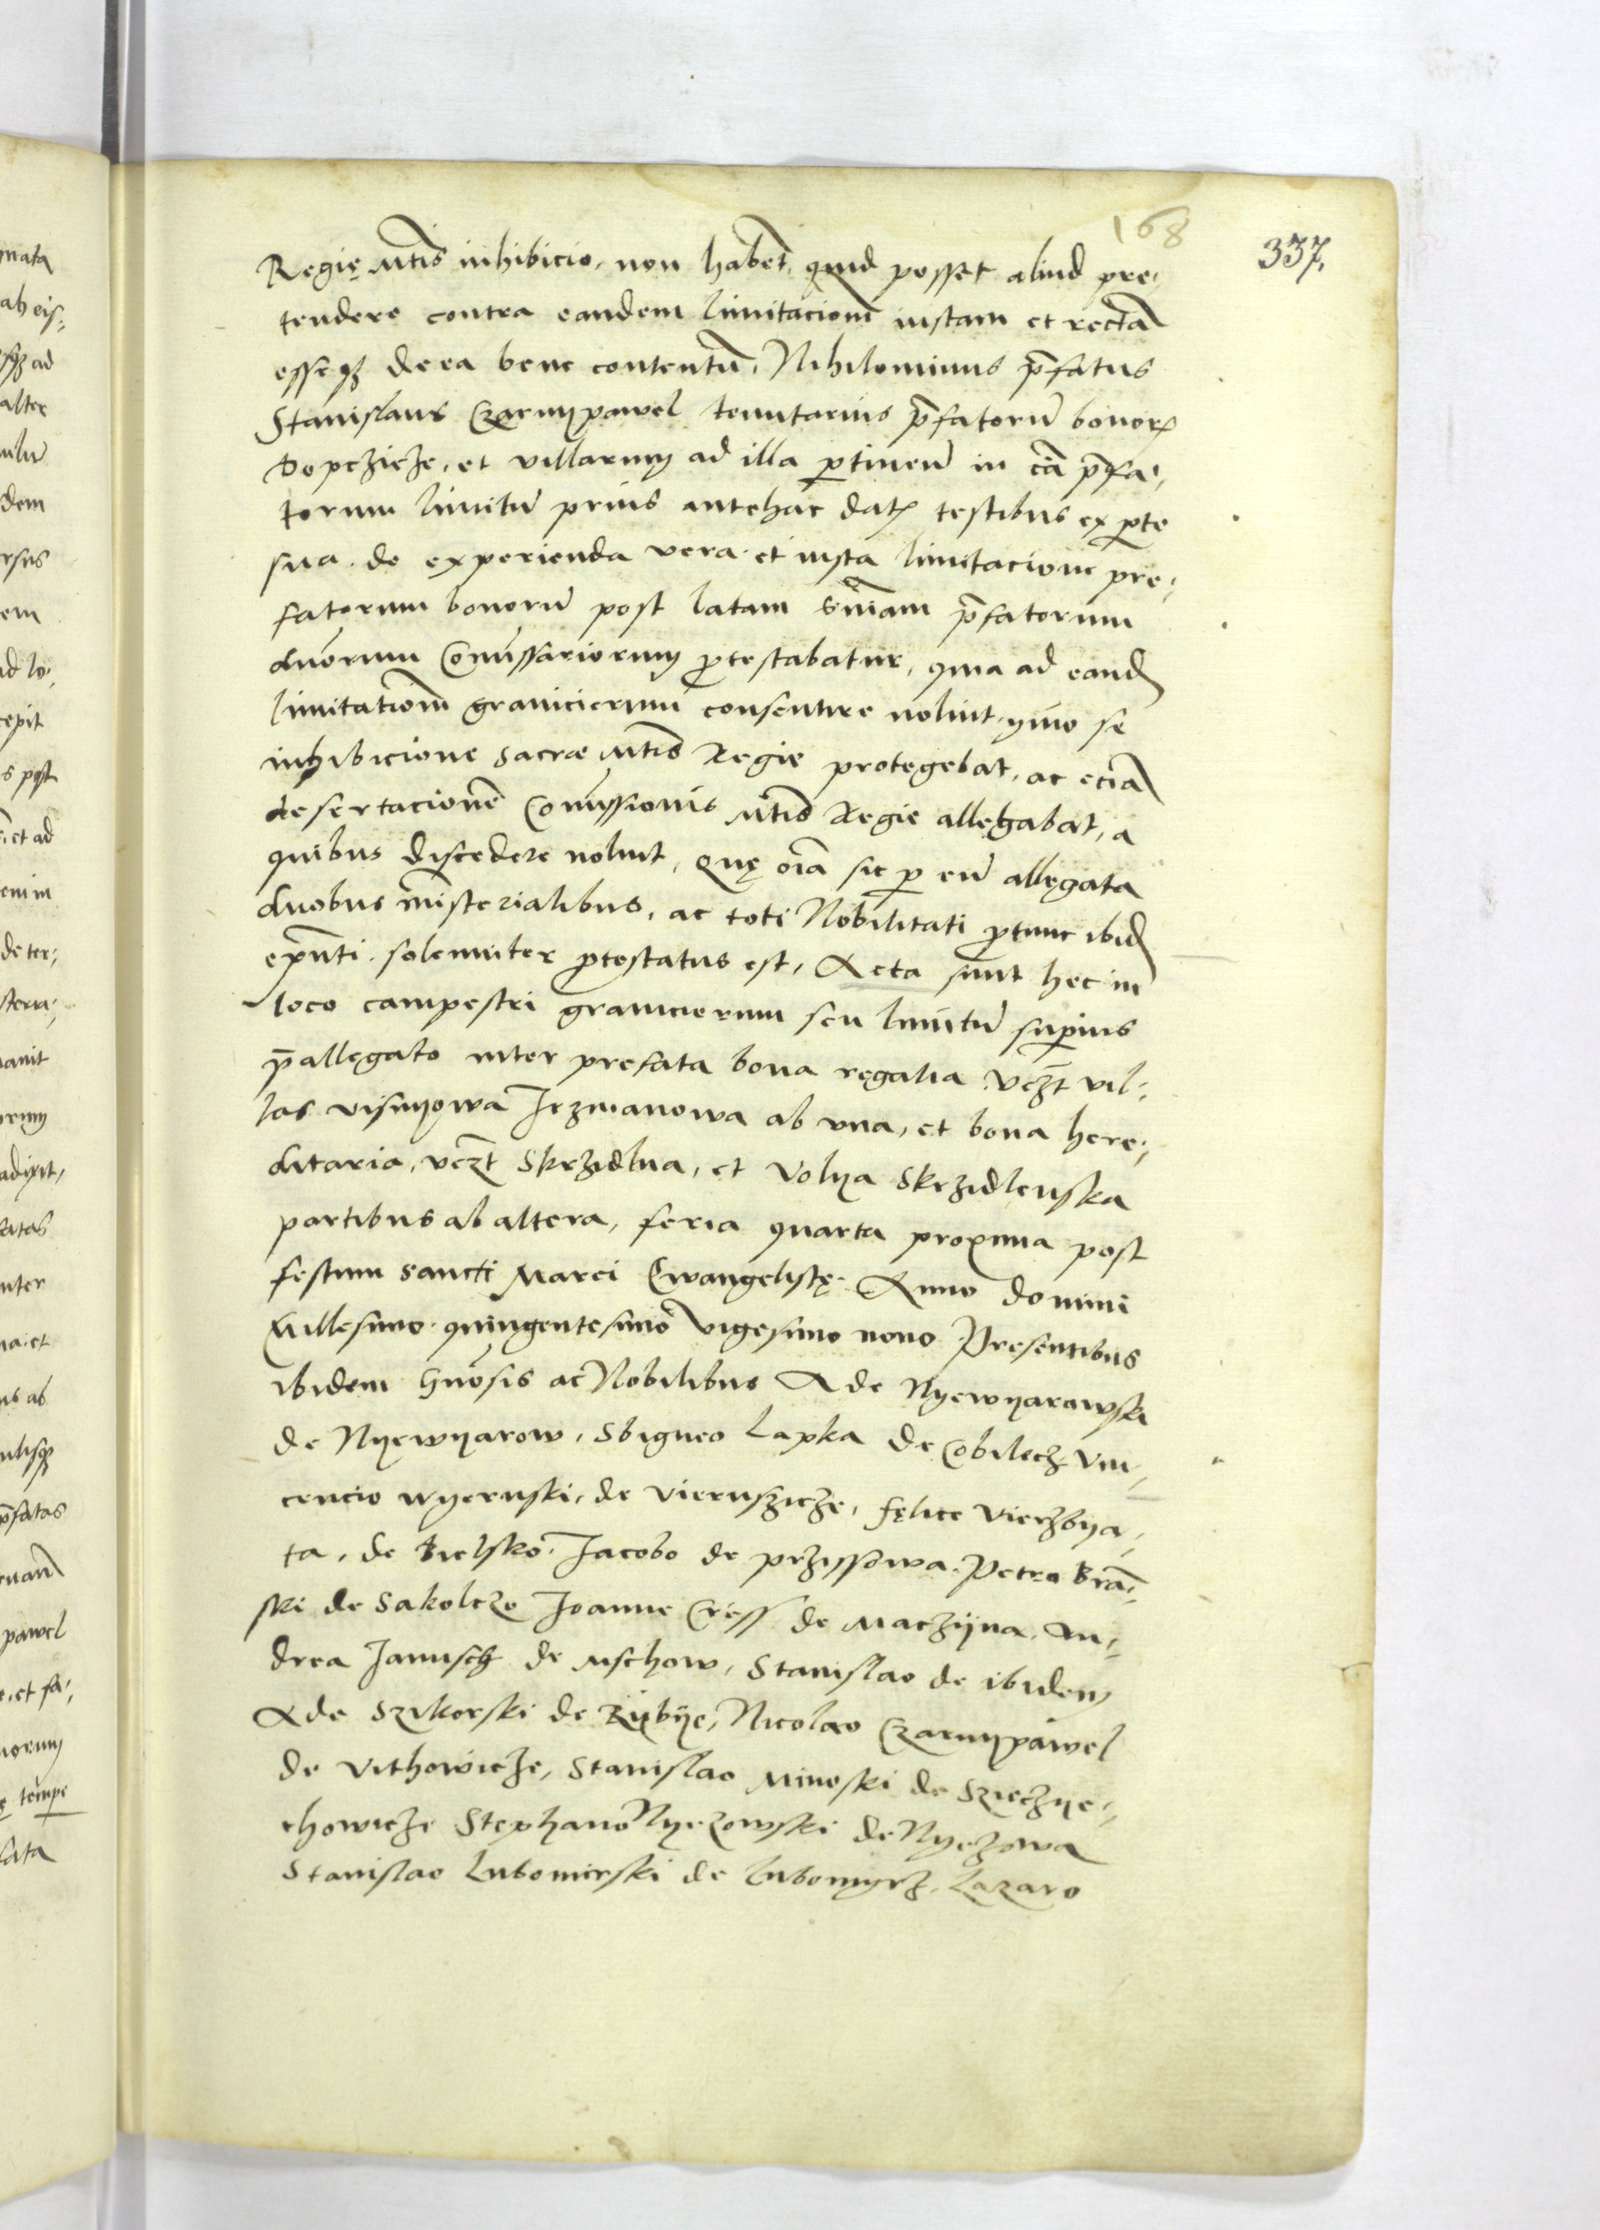 168
337.
Regię Mtis inhibicio, non habet, quid posset aliud pre-
tendere contra eandem limitacionem iustam et rectā
esseqꝫ de ea bene contentū, Nihilominus p̄fatus
Stanislaus Czarnypawel tenutarius p̄fatorū bonorꝝ
Dopczicze, et villarum ad illa ꝑtineñ in cā p̄fa-
torum limitū prius antehac datꝭ testibus ex ꝑte
sua. de experienda vera et iusta limitacione pre-
fatorum bonorū post latam sn̄iam p̄fatorum
duorum Comissariorum ꝓtestabatur, quia ad eand
limitationem granicierum consentire noluit, ymo se
inhibicione Sacræ Mtis Regie protegebat, ac eciā
desertacionē Comissionis Mtis Regie allegabat, a
quibus discedere noluit, Quę oīa sic ꝑ eū allęgata
duobus ministerialibus, ac toti Nobilitati ꝓtunc ibid
exn̄ti. solemniter ꝓtestatus est, Acta sunt hec in
loco campestri granicierum seu limitū supius
p̄allęgato inter prefata bona ręgalia vczt vil-
las Visnyowa Jrzmanowa ab vna, et bona here-
ditaria, vczt Skrzidlna, et Volya Skrzidlenska
partibus ab altera, feria quarta proxima post
festum Sancti Marci Ewangelistę. Anno domini
Millesimo quingentesimo vigesimo nono Presentibus
ibidem Gnosis ac Nobilibus Ade Nyewyarowski
de Nyewyarow, Sbigneo Lapka de Cobilecz Vin-
cencio Wyernski, de Viernszicze, Fęlice Vierzbya-
ta, de Bielsko. Jacobo de Przissowa. Petro Brā-
ski de Sakolcze Joanne Cress de Maczyna. An-
drea Janusch de Mschow, Stanislao de ibidem
Ade Szikorski de Rybye, Nicolao Czarnypawel
de Vithowicze, Stanislao Minoski de Szieczye-
chowicze Stephano Nyezowski de Nyezowa
Stanislao Lubomirski de Lubomyrz, Lazaro